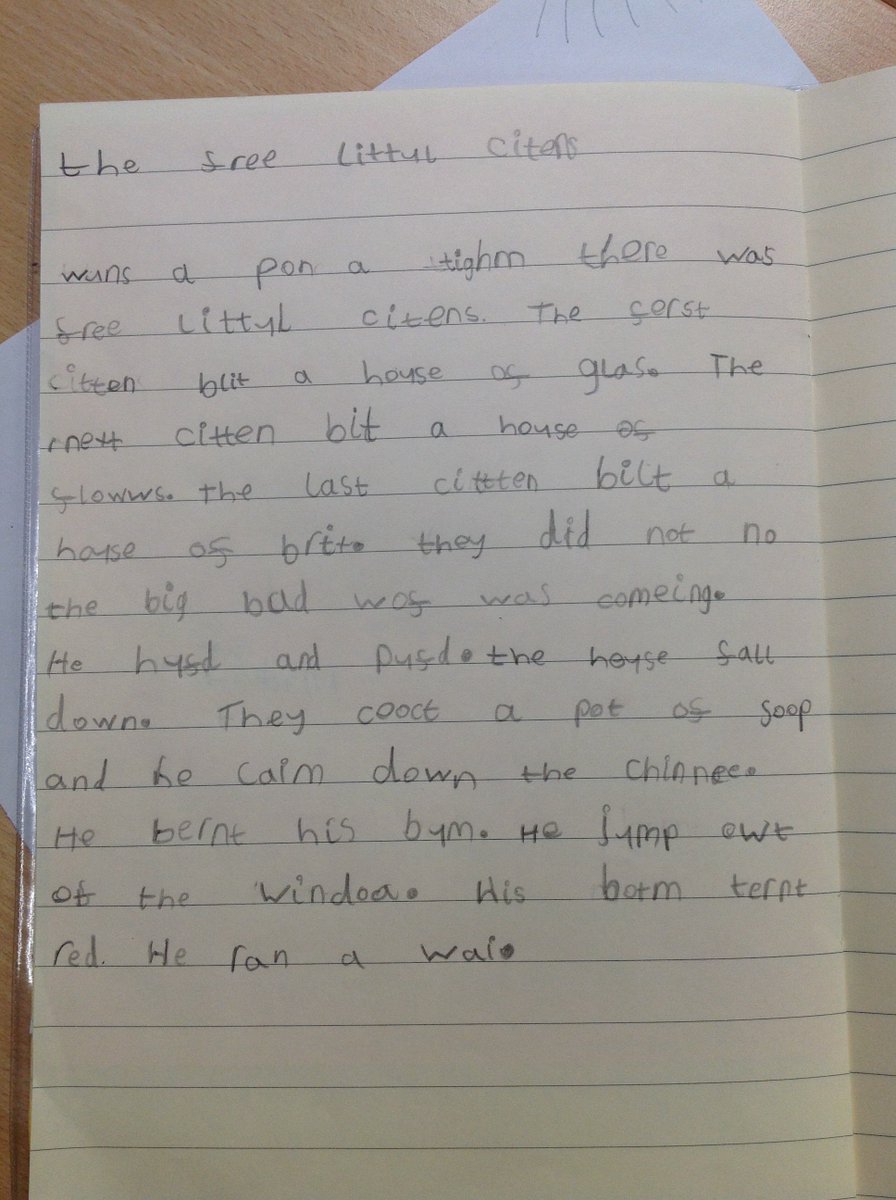 the free littyl citens
wuns a pon a tighm there was
free littyl citens. The ferst
citten blit a house of glas. The
next citten bit a house of
flowws. the last cittten bilt a
house of brit. they did not no
the big bad wof was comeing.
He hufd and pufd. the house fall
down. They cooct a pot of soop
and he caim down the chinnee.
He bernt his bum. He jump owt
of the windoa. His botm ternt
red. He ran a wai.